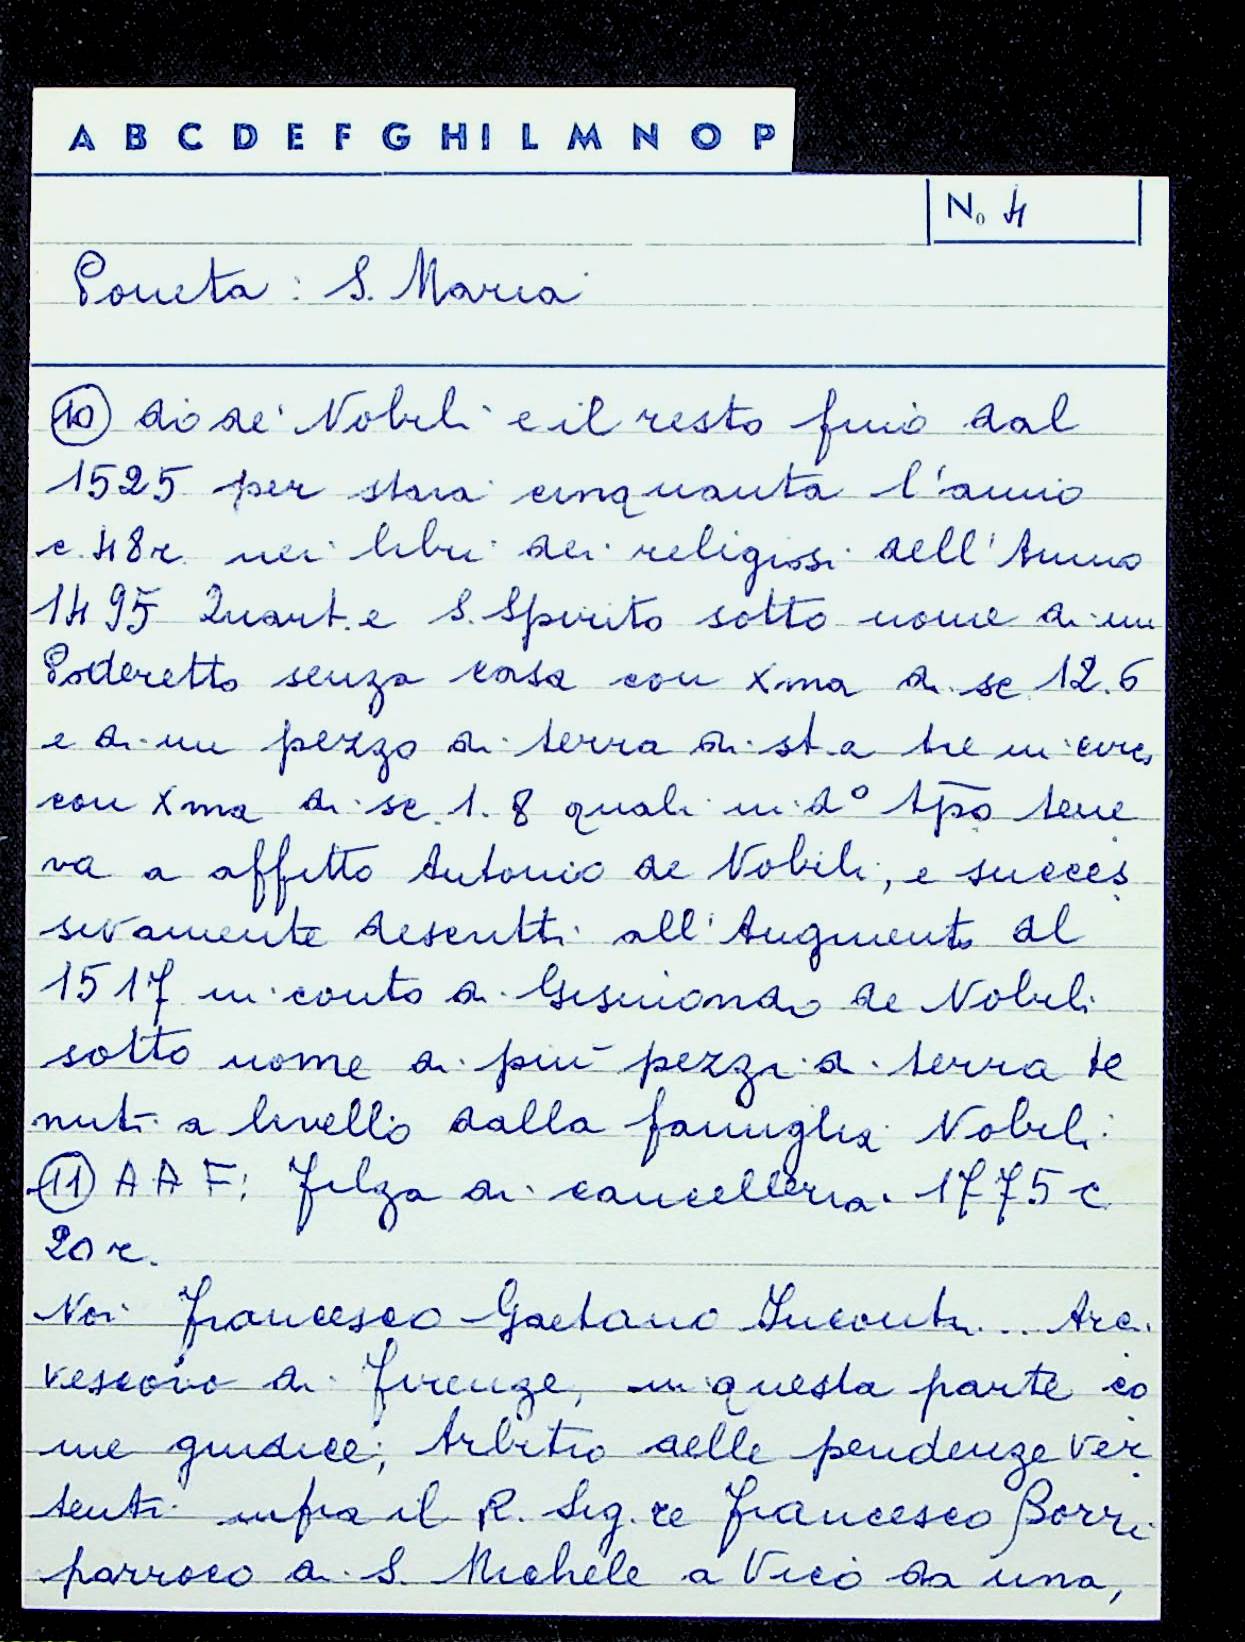 A B C D E F G H I L M N O P
No 4
Poneta: S. Maria
10 dio de' Nobili e il resto fino dal
1525 per staia cinquanta l'anno
c. 48r. nei libri dei religiosi dell'Anno
1495 Quart.e S. Spirito sotto nome di un
Poderetto senza casa con Xma di sc. 12.6
e di un pezzo di terra di st.a tre in circa
con Xma di sc. 1.8 quali in do tpo tene
va a affitto Antonio de Nobili, e succes
sivamente descritti all'Augmento al
1517 in conto di Gismondo de Nobili
sotto nome di più pezzi di terra te
nuti a livello dalla famiglia Nobili.
11 A A F: Filza di cancelleria 1775 c
20r.
Noi Francesco Gaetano Incontri... Arci
vescovo di Firenze, in questa parte co
me giudice, Arbitro delle pendenze ver
tenti infra il R. Sig.re Francesco Borri
parroco di S. Michele a Vico da una,